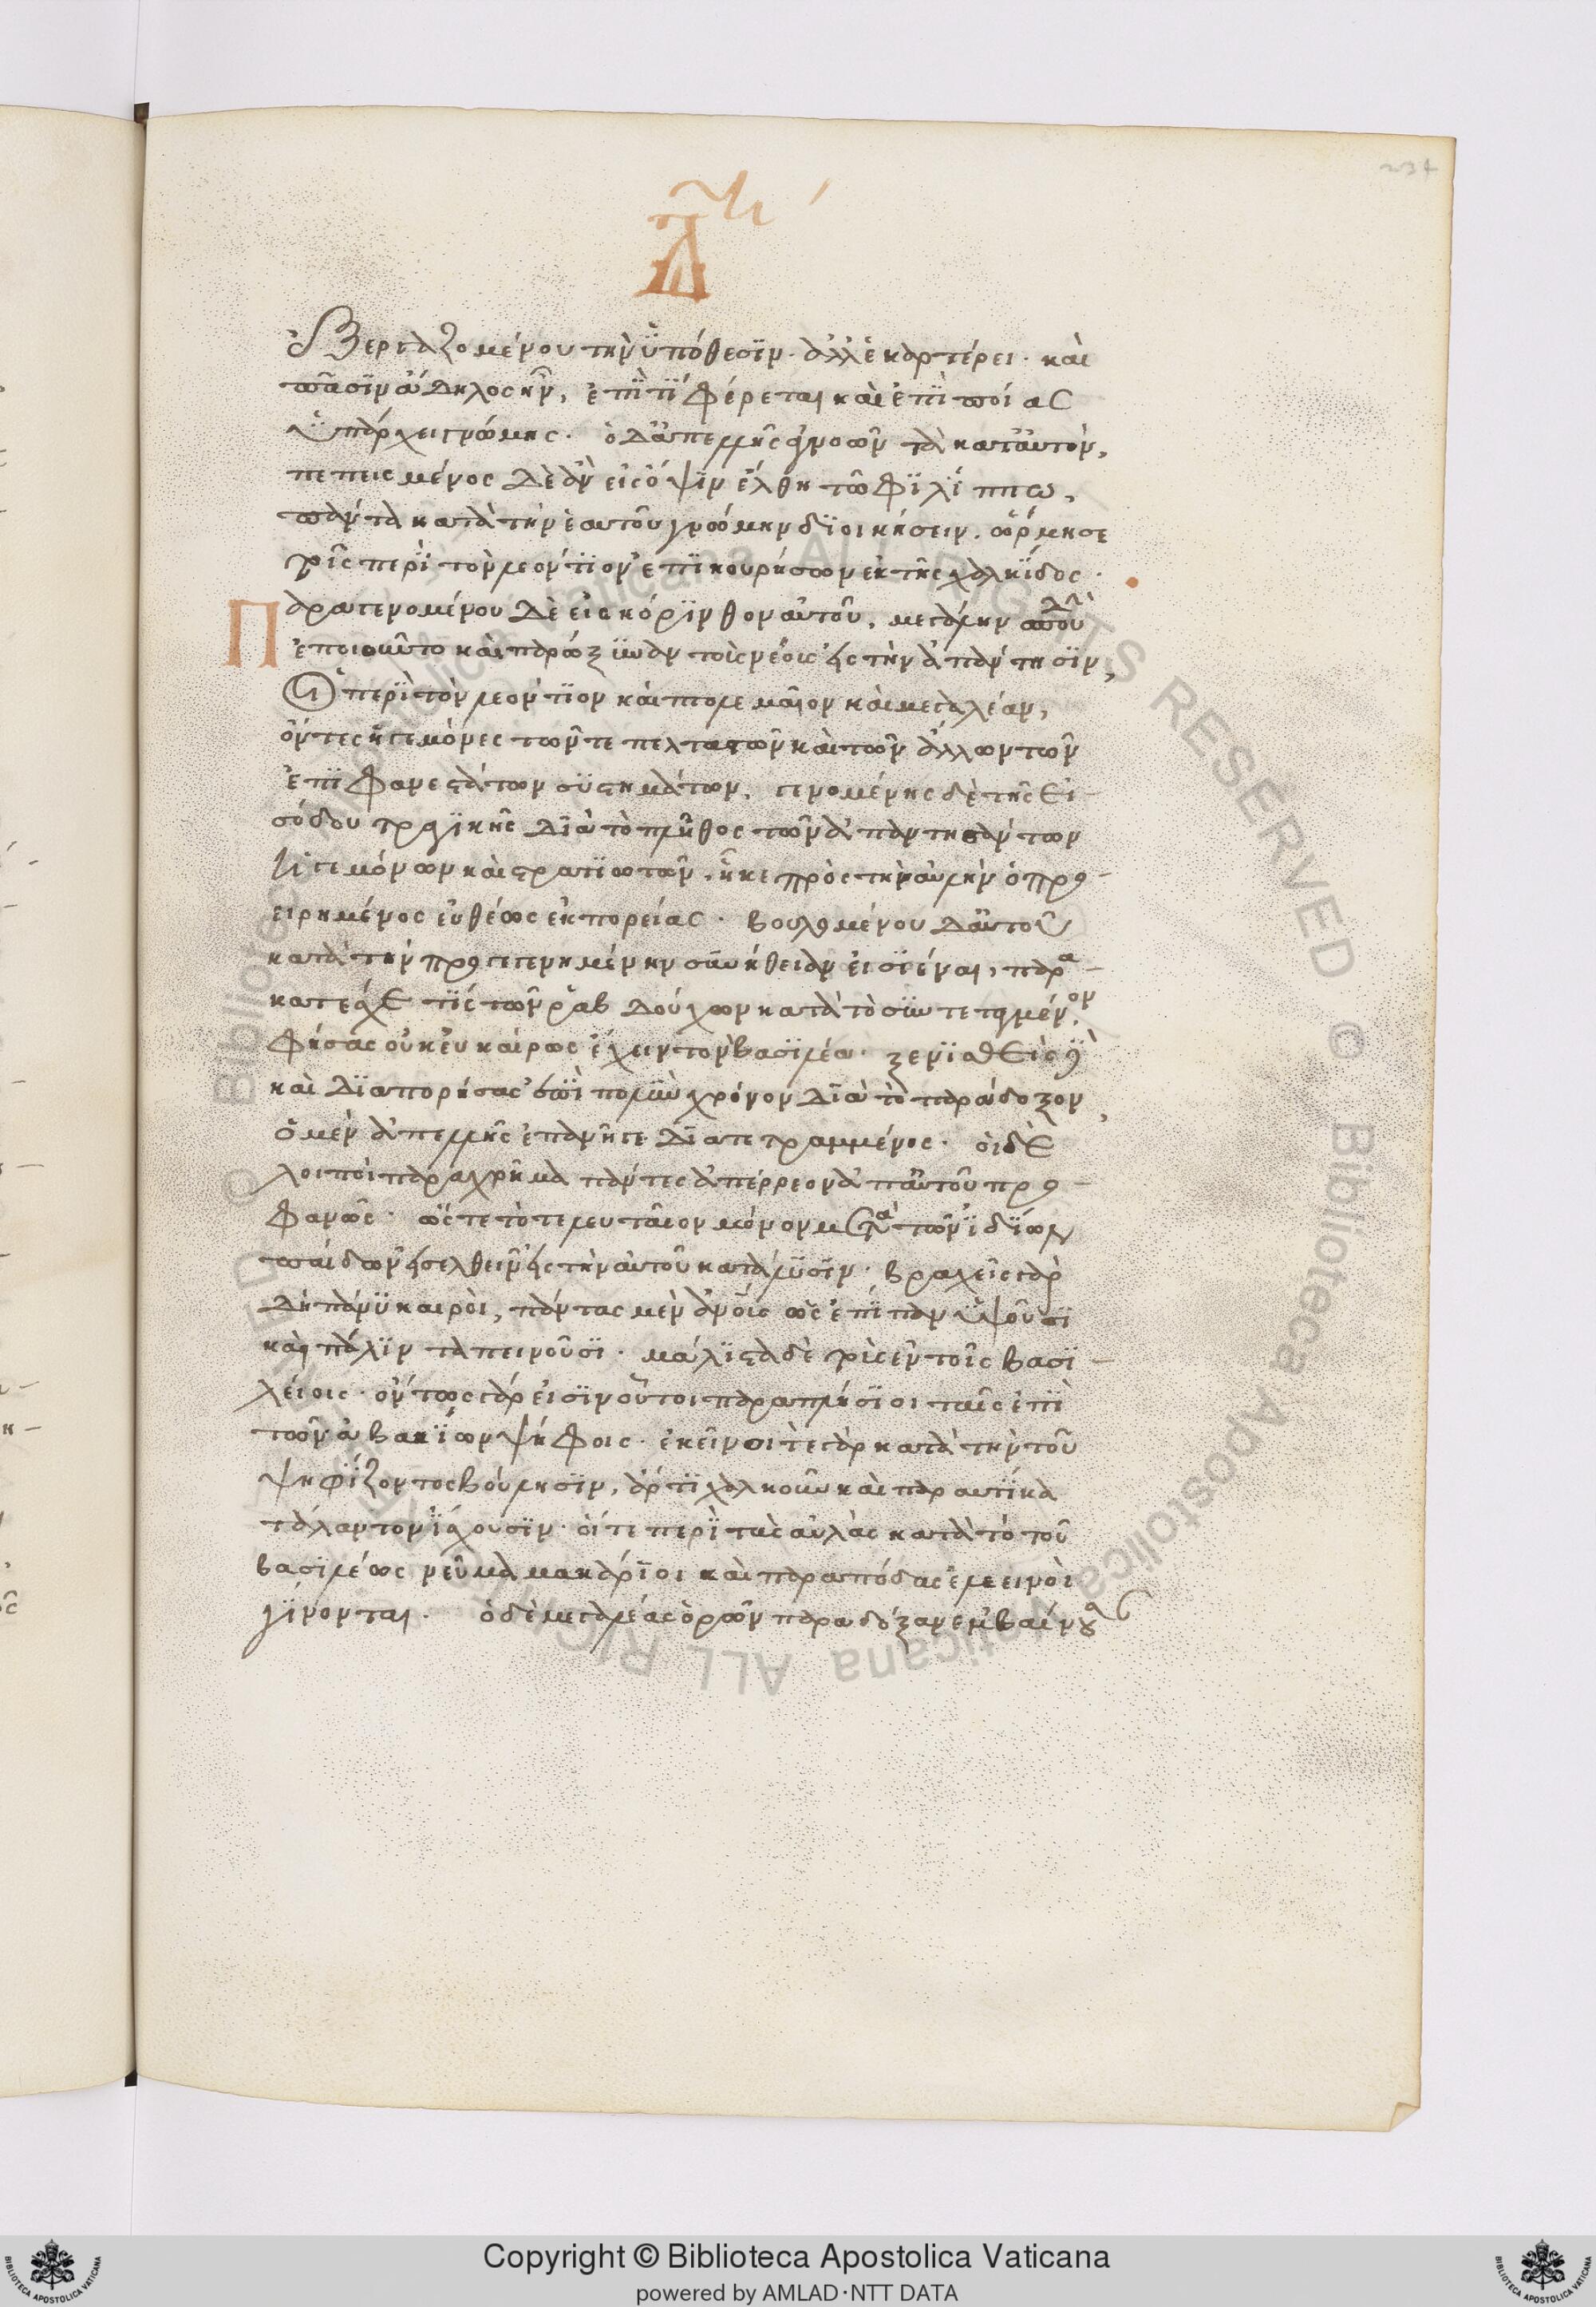 234
ἐξεργαζομένου τὴν ὑπόθεσιν. ἀλλ' ἐκαρτέρει. καὶ
πᾶσιν ἄδηλος ἦν, ἐπὶ τί φέρεται καὶ ἐπὶ ποίας
ὑπάρχει γνώμης. ὁ δ' ἀπελλῆς ἀγνοῶν τὰ κατ' αὐτὸν,
πεπεισμένος δὲ ἂν εἰς ὄψιν ἔλθη τῶ φιλίππω,
πάντα κατὰ τὴν ἑαυτοῦ γνώμην διοικήσειν. ὥρμησε
τοῖς περὶ τὸν λεόντιον ἐπικουρήσων ἐκ τῆς χαλκίδος.
Παραγενομένου δὲ εἰς κόρινθον αὐτοῦ, μεγάλην σπουδὴν
ἐποιοῦντο καὶ παρώξυναν τοὺς νέους εἰς τὴν ἀπάντησιν,
Οἱ περὶ τὸν λεόντιον καὶ πτολεμαῖον καὶ μεγαλέαν,
ὄντες ἡγεμόνες τῶν τε πελταστῶν καὶ τῶν ἄλλων τῶν
ἐπιφανεστάτων συστημάτων. γενομένης δὲ τῆς εἰ-
σόδου τραγικῆς διὰ τὸ πλῆθος τῶν ἀπαντησάντων
ἡγεμόνων καὶ στρατιωτῶν. ἧκε πρὸς τὴν αὐλὴν ὁ προ-
ειρημένος εὐθέως ἐκ πορείας. βουλομένου δ' αὐτοῦ
κατὰ τὴν προγεγενημένην συνήθειαν εἰσιέναι, παρα-
κατέσχε τίς τῶν ῥαβδούχων κατὰ τὸ συντεταγμένον.
φήσας οὐκ εὐκαίρως ἔχειν τὸν βασιλέα. ξενισθεὶς δὲ
καὶ διαπορήσας ἐπὶ πολὺν χρόνον διὰ τὸ παράδοξον,
ὁ μὲν ἀπελλῆς ἐπανῆγε διατετραμμένος. οἱ δὲ
λοιποὶ παραχρῆμα πάντες ἀπέρρεον ἀπ' αὐτοῦ προ-
φανῶς. ὥστε τὸ τελευταῖον μόνον μετὰ τῶν ἰδίων
παίδων εἰσελθεῖν εἰς τὴν αὐτοῦ κατάλυσιν. βραχεῖς γὰρ
δὴ πάνυ καιροὶ, πάντας μὲν ἀνθρώπους ὡς ἐπίπαν ὑψοῦσι
καὶ πάλιν ταπεινοῦσι. μάλιστα δὲ τοὺς ἐν τοῖς βασι-
λείοις. ὄντως γάρ εἰσιν οὗτοι παραπλήσιοι ταῖς ἐπὶ
τῶν ἀβακίων ψήφοις. ἐκεῖναί τε γὰρ κατὰ τὴν τοῦ
ψηφίζοντος βούλησιν, ἄρτι χαλκοῦν καὶ παραυτίκα
τάλαντον ἰσχύουσιν. οἵ τε περὶ τὰς αὐλὰς κατὰ τὸ τοῦ
βασιλέως νεῦμα μακάριοι καὶ παρὰ πόδας ἐλεεινοὶ
γίνονται. ὁ δὲ μεγαλέας ὁρῶν παρὰ δόξαν ἐκβαίνουσαν
Copyright © Biblioteca Apostolica Vaticana
powered by AMLAD·NTT DATA